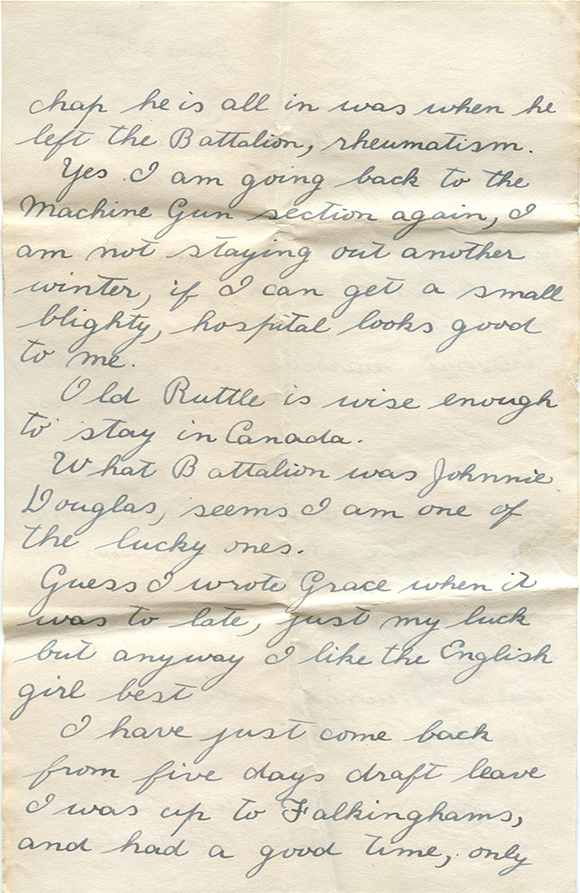 chap he is all in was when he
left the Battalion, rheumatism.
Yes I am going back to the
Machine Gun section again, I
am not staying out another
winter, if I can get a small
blighty, hospital looks good
to me.
Old Ruttle is wise enough
to stay in Canada.
What Battalion was Johnnie
Douglas, seems I am one of
the lucky ones.
Guess I wrote Grace when it
was to late, just my luck
but anyway I like the English
girl best
I have just come back
from five days draft leave
I was up to Falkinghams,
and had a good time, only